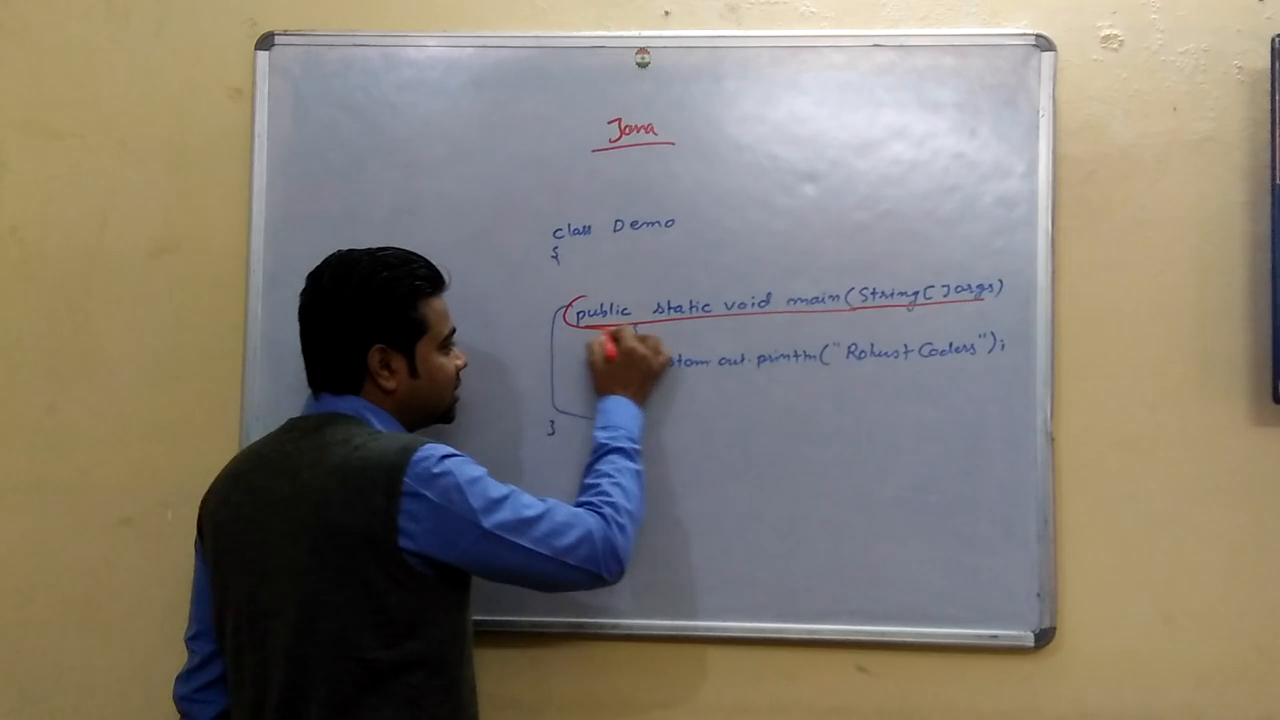 Java
class Demo
{
public static void main(String[]args)
{
stem.out.println("Robust Coders");
}